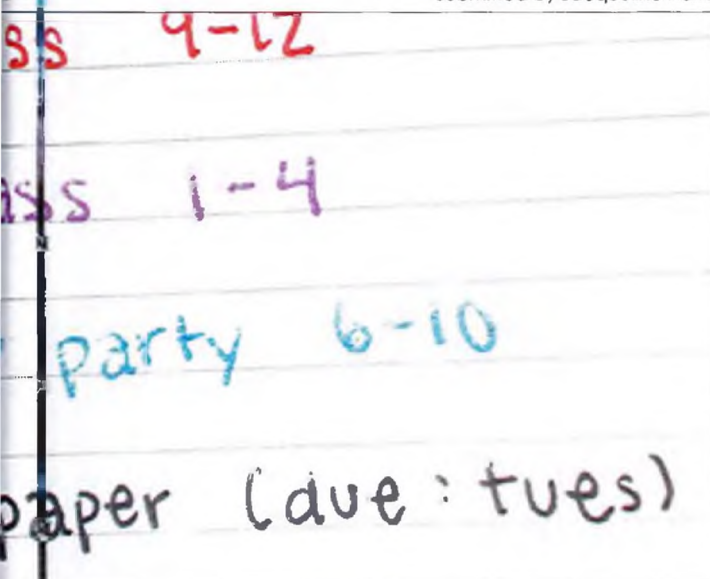 ss 9-12
ass 1-4
party 6-10
paper (due: tues)